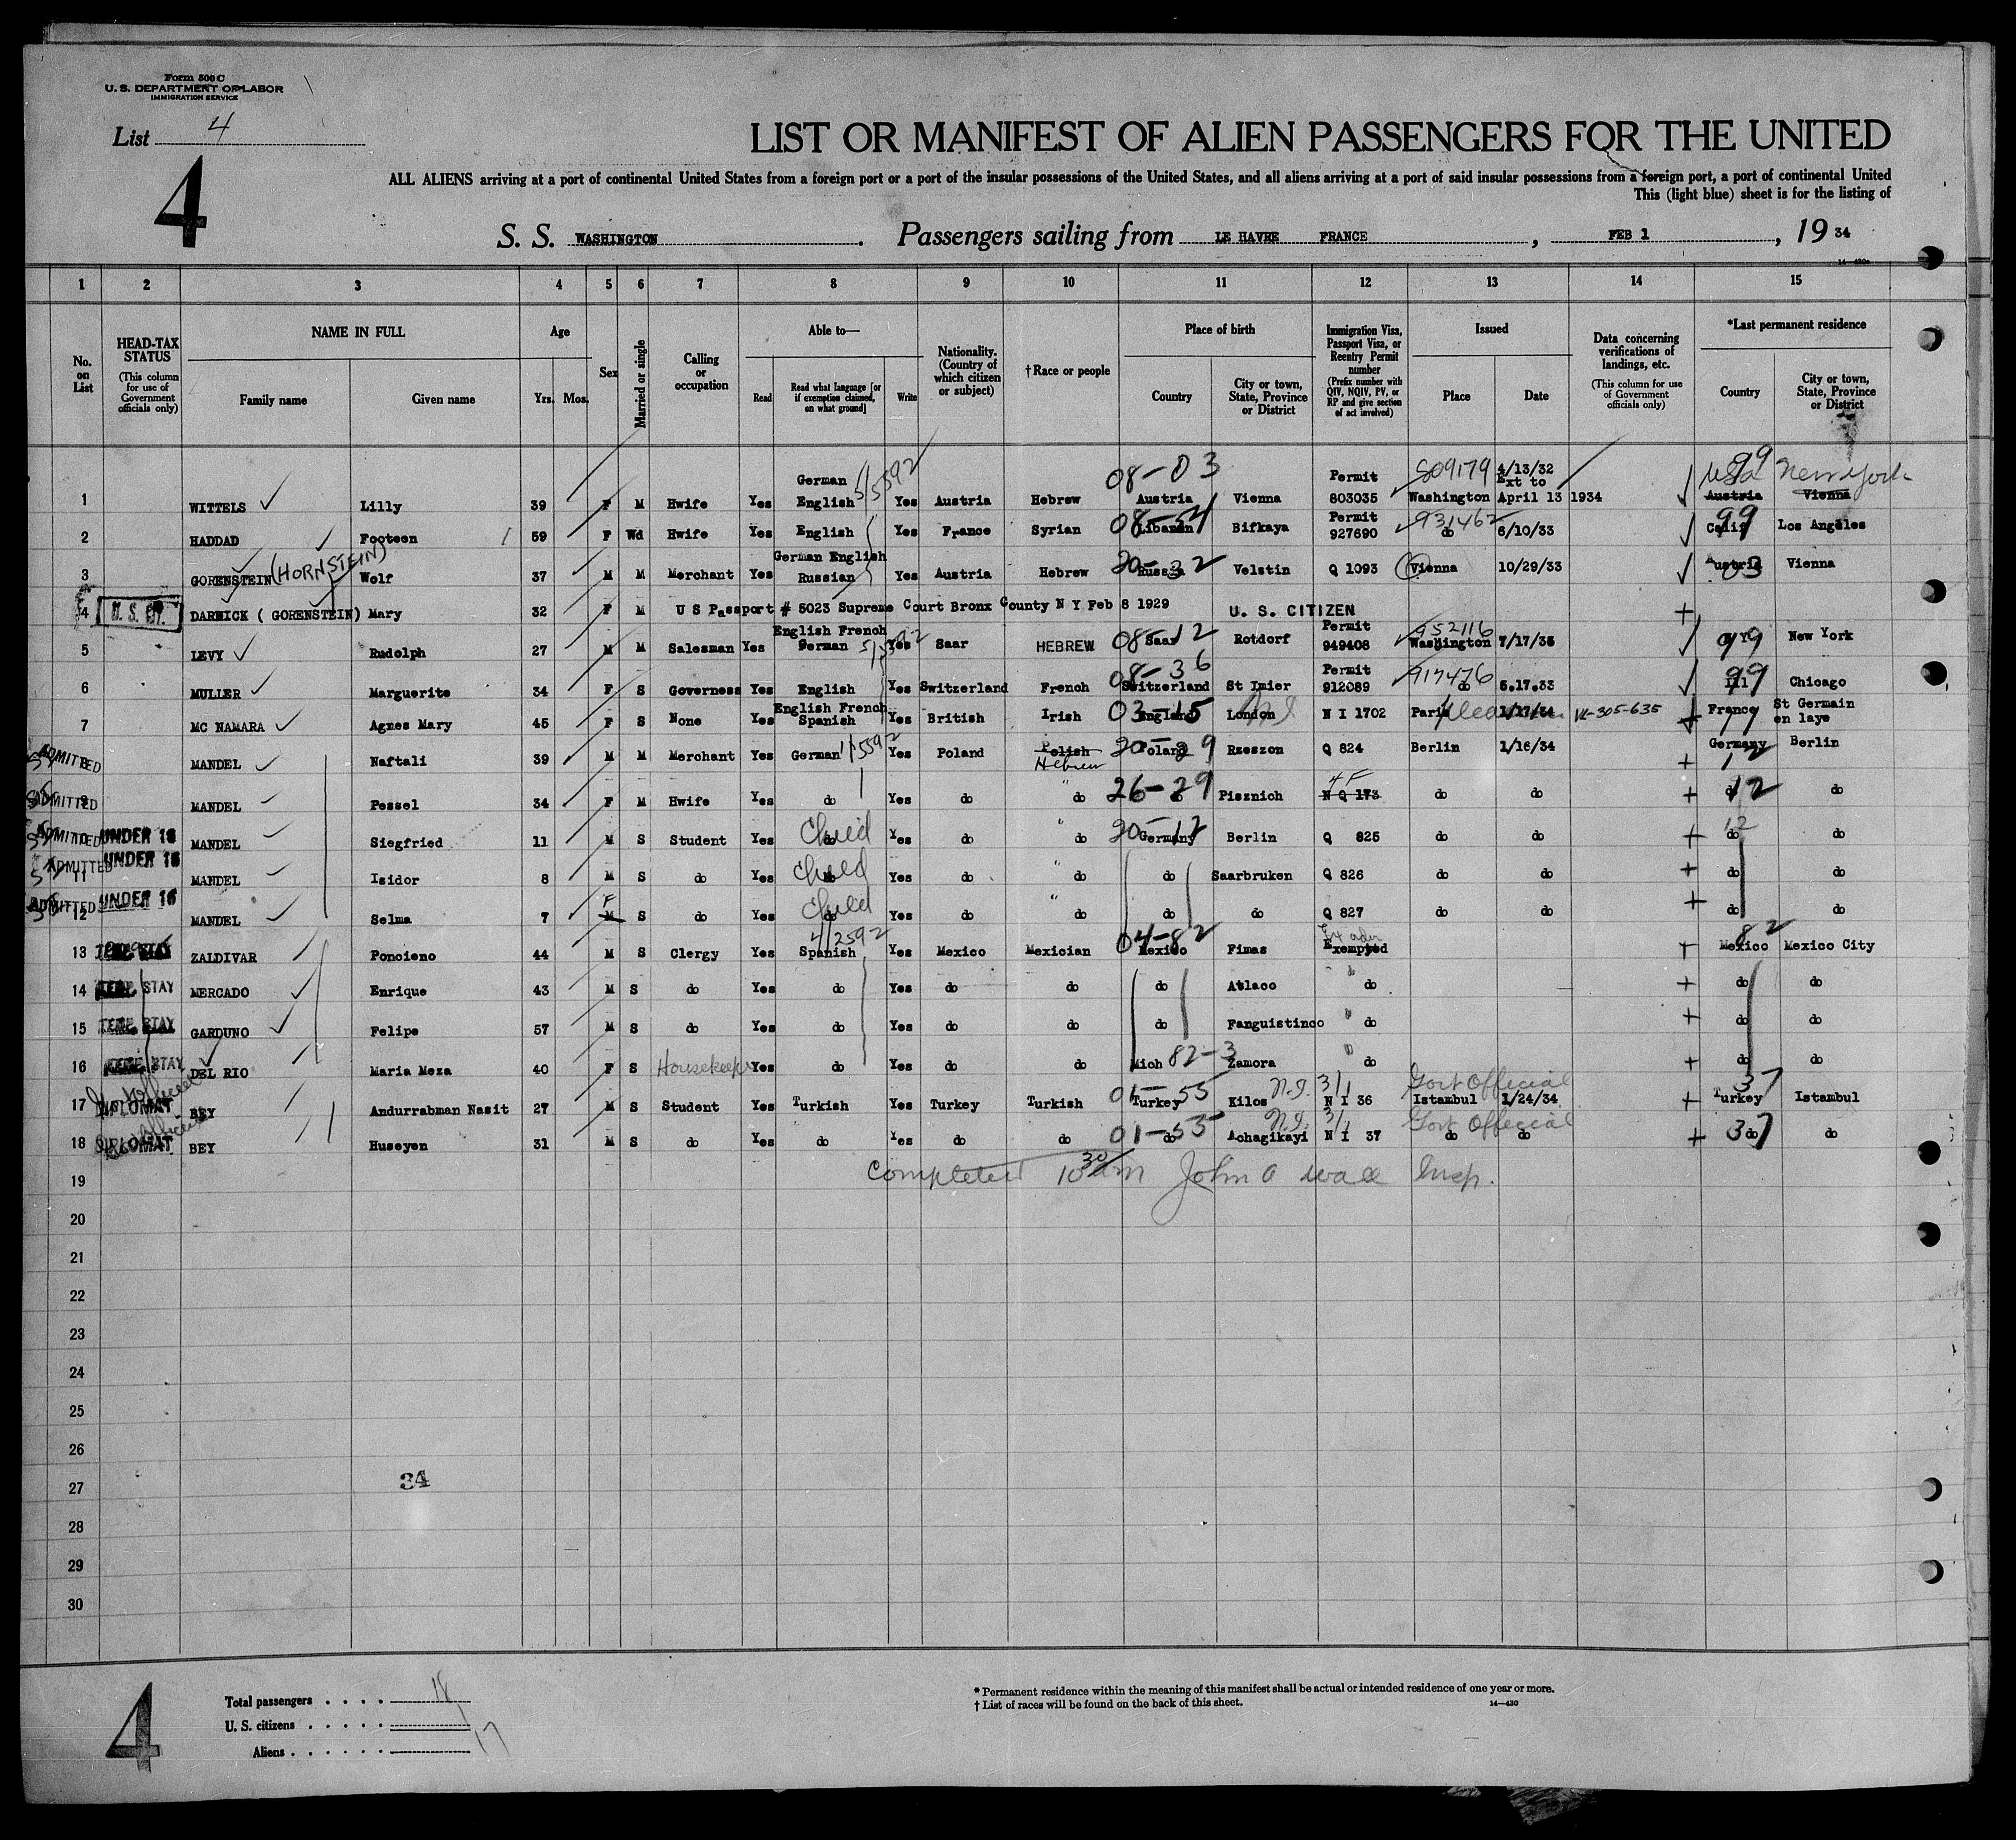 Form 500 C
U. S. DEPARTMENT OF LABOR
IMMIGRATION SERVICE
List 4
4
LIST OR MANIFEST OF ALIEN PASSENGERS FOR THE UNITED
ALL ALIENS arriving at a port of continental United States from a foreign port or a port of the insular possessions of the United States, and all aliens arriving at a port of said insular possessions from a foreign port, a port of continental United
This (light blue) sheet is for the listing of
S. S. WASHINGTON. Passengers sailing from LE HAVRE FRANCE, FEB 1, 19 34
1 2 3 4 5 6 7 8 9 10 11 12 13 14 15
No. on List
HEAD-TAX STATUS (This column for use of Government officials only)
NAME IN FULL Family name Given name
Age Yrs. Mos.
Sex
Married or single
Calling or occupation
Able to— Read Read what language [or if exemption claimed, on what ground] Write
Nationality. (Country of which citizen or subject)
†Race or people
Place of birth Country City or town, State, Province or District
Immigration Visa, Passport Visa, or Reentry Permit number (Prefix number with QIV, NQIV, PV, or RP and give section of act involved)
Issued Place Date
Data concerning verifications of landings, etc. (This column for use of Government officials only)
*Last permanent residence Country City or town, State, Province or District
1 WITTELS Lilly 39 F M Hwife Yes German English 5/5592 Yes Austria Hebrew 08-03 Austria Vienna Permit 803035 809179 Washington 4/13/32 Ext to April 13 1934 99 USA New York Austria Vienna
2 HADDAD Footeen 59 F Wd Hwife Yes English Yes France Syrian 08-51 Libanen Bifkaya Permit 927690 931462 do 6/10/33 99 Calif Los Angeles
3 GORENSTEIN (HORNSTEIN) Wolf 37 M M Merchant Yes German English Russian Yes Austria Hebrew 20-32 Russia Velstin Q 1093 Vienna 10/29/33 Austria 03 Vienna
4 U. S. CIT. DARWICK ( GORENSTEIN) Mary 32 F M U S Passport # 5023 Supreme Court Bronx County N Y Feb 8 1929 U. S. CITIZEN
5 LEVY Rudolph 27 M M Salesman Yes English French German 5/5592 Yes Saar HEBREW 08-12 Saar Rotdorf Permit 949408 952116 Washington 7/17/33 N Y 99 New York
6 MULLER Marguerite 34 F S Governess Yes English Yes Switzerland French 08-36 Switzerland St Imier Permit 912089 917476 do 5.17.33 99 Ill Chicago
7 MC NAMARA Agnes Mary 45 F S None Yes English French Spanish Yes British Irish 03-15 England London N I 1702 Paris 1/17/34 VL-305-635 France St Germain en laye
ADMITTED 8 MANDEL Naftali 39 M M Merchant Yes German 1/5592 Yes Poland Polish Hebrew 20-29 Poland Rzeszon Q 824 Berlin 1/16/34 Germany 12 Berlin
ADMITTED 9 MANDEL Pessel 34 F M Hwife Yes do Yes do " do 26-29 do Pisznich 4F N Q 173 do do do 12 do
ADMITTED 10 UNDER 16 MANDEL Siegfried 11 M S Student Yes do Child Yes do " do 20-12 Germany Berlin Q 825 do do 12 do do
ADMITTED 11 UNDER 16 MANDEL Isidor 8 M S do Yes do Child Yes do " do do Saarbruken Q 826 do do do do
ADMITTED 12 UNDER 16 MANDEL Selma 7 F M S do Yes do Child Yes do " do do do Q 827 do do do do
13 TEMP STAY ZALDIVAR Poncieno 44 M S Clergy Yes 4/2592 Spanish Yes Mexico Mexician 04-82 Mexico Fimas Exempted 82 Mexico Mexico City
14 TEMP STAY MERCADO Enrique 43 M S do Yes do Yes do do do Atlaco do do do
15 TEMP STAY GARDUNO Felipe 57 M S do Yes do Yes do do do Fanguistinco do do do
16 TEMP STAY DEL RIO Maria Meza 40 F S Housekeeper Yes do Yes do do Mich 82-3 Zamora do do do
17 Govt official DIPLOMAT BEY Andurrabman Nasit 27 M S Student Yes Turkish Yes Turkey Turkish 01-55 Turkey Kilos N.I. 3/1 N I 36 Govt Official Istambul 1/24/34 37 Turkey Istambul
18 Govt official DIPLOMAT BEY Huseyen 31 M S do Yes do Yes do do 01-55 do Achagikayi N.I. 3/1 N I 37 Govt Official do do 37 do do
19 Completed 10 30 am John A Wall Insp.
20
21
22
23
24
25
26
27 34
28
29
30
4
Total passengers . . . . 18
U. S. citizens . . . . . 1
Aliens . . . . . . 17
* Permanent residence within the meaning of this manifest shall be actual or intended residence of one year or more.
† List of races will be found on the back of this sheet.
14—430